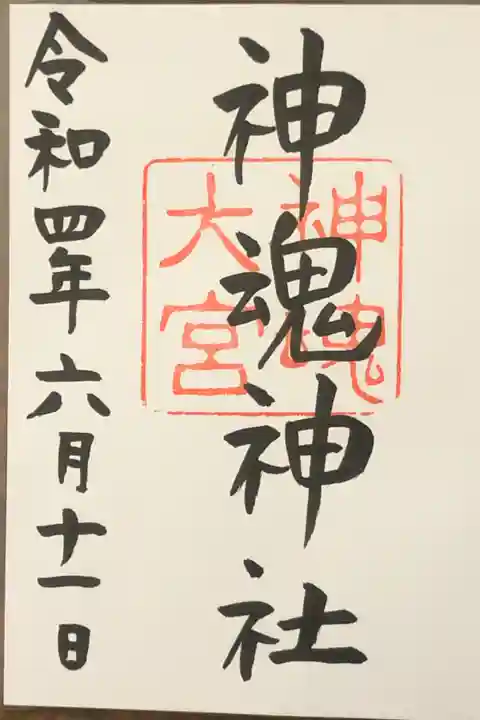 神魂神社
神魂
大宮
令和四年六月十一日